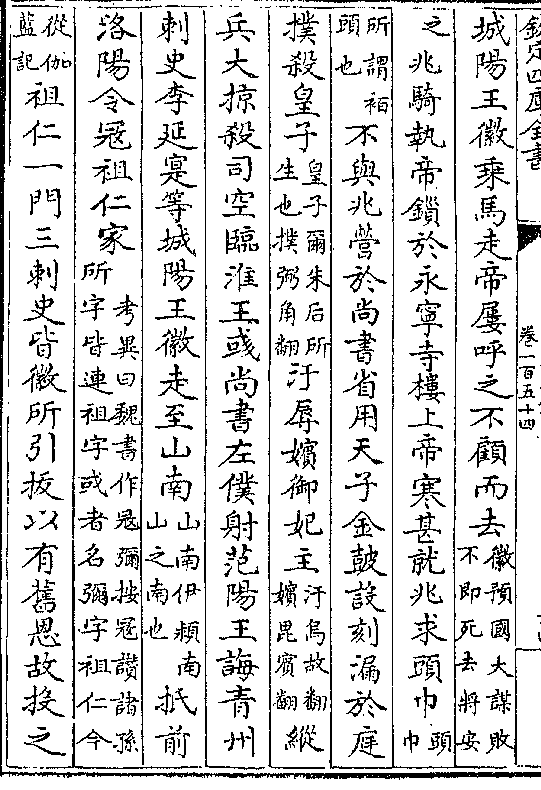 欽定四庫全書
卷一百五十四
城陽王徽乗馬走帝屢呼之不顧而去徽預國大謀敗不即死去將安
之兆騎執帝鎖於永寧寺樓上帝寒甚就兆求頭巾頭巾
所謂袙頭也不與兆營於尚書省用天子金鼓設刻漏於庭
撲殺皇子皇子爾朱后所生也撲弼角翻汙辱嬪御妃主汙烏故翻嬪毘賓翻縱
兵大掠殺司空臨淮王彧尚書左僕射范陽王誨青州
刺史李延寔等城陽王徽走至山南山南伊潁南山之南也抵前
洛陽令冦祖仁家考異曰魏書作冦彌按冦讃諸孫所字皆連祖字或者名彌字祖仁今
從伽藍記祖仁一門三刺史皆徽所引拔以有舊恩故投之